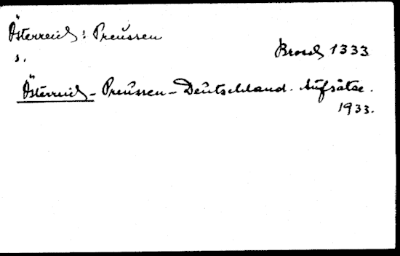 Österreich : Preussen
Brosch 1333
s.
Österreich - Preussen - Deutschland. Aufsätze.
1933.